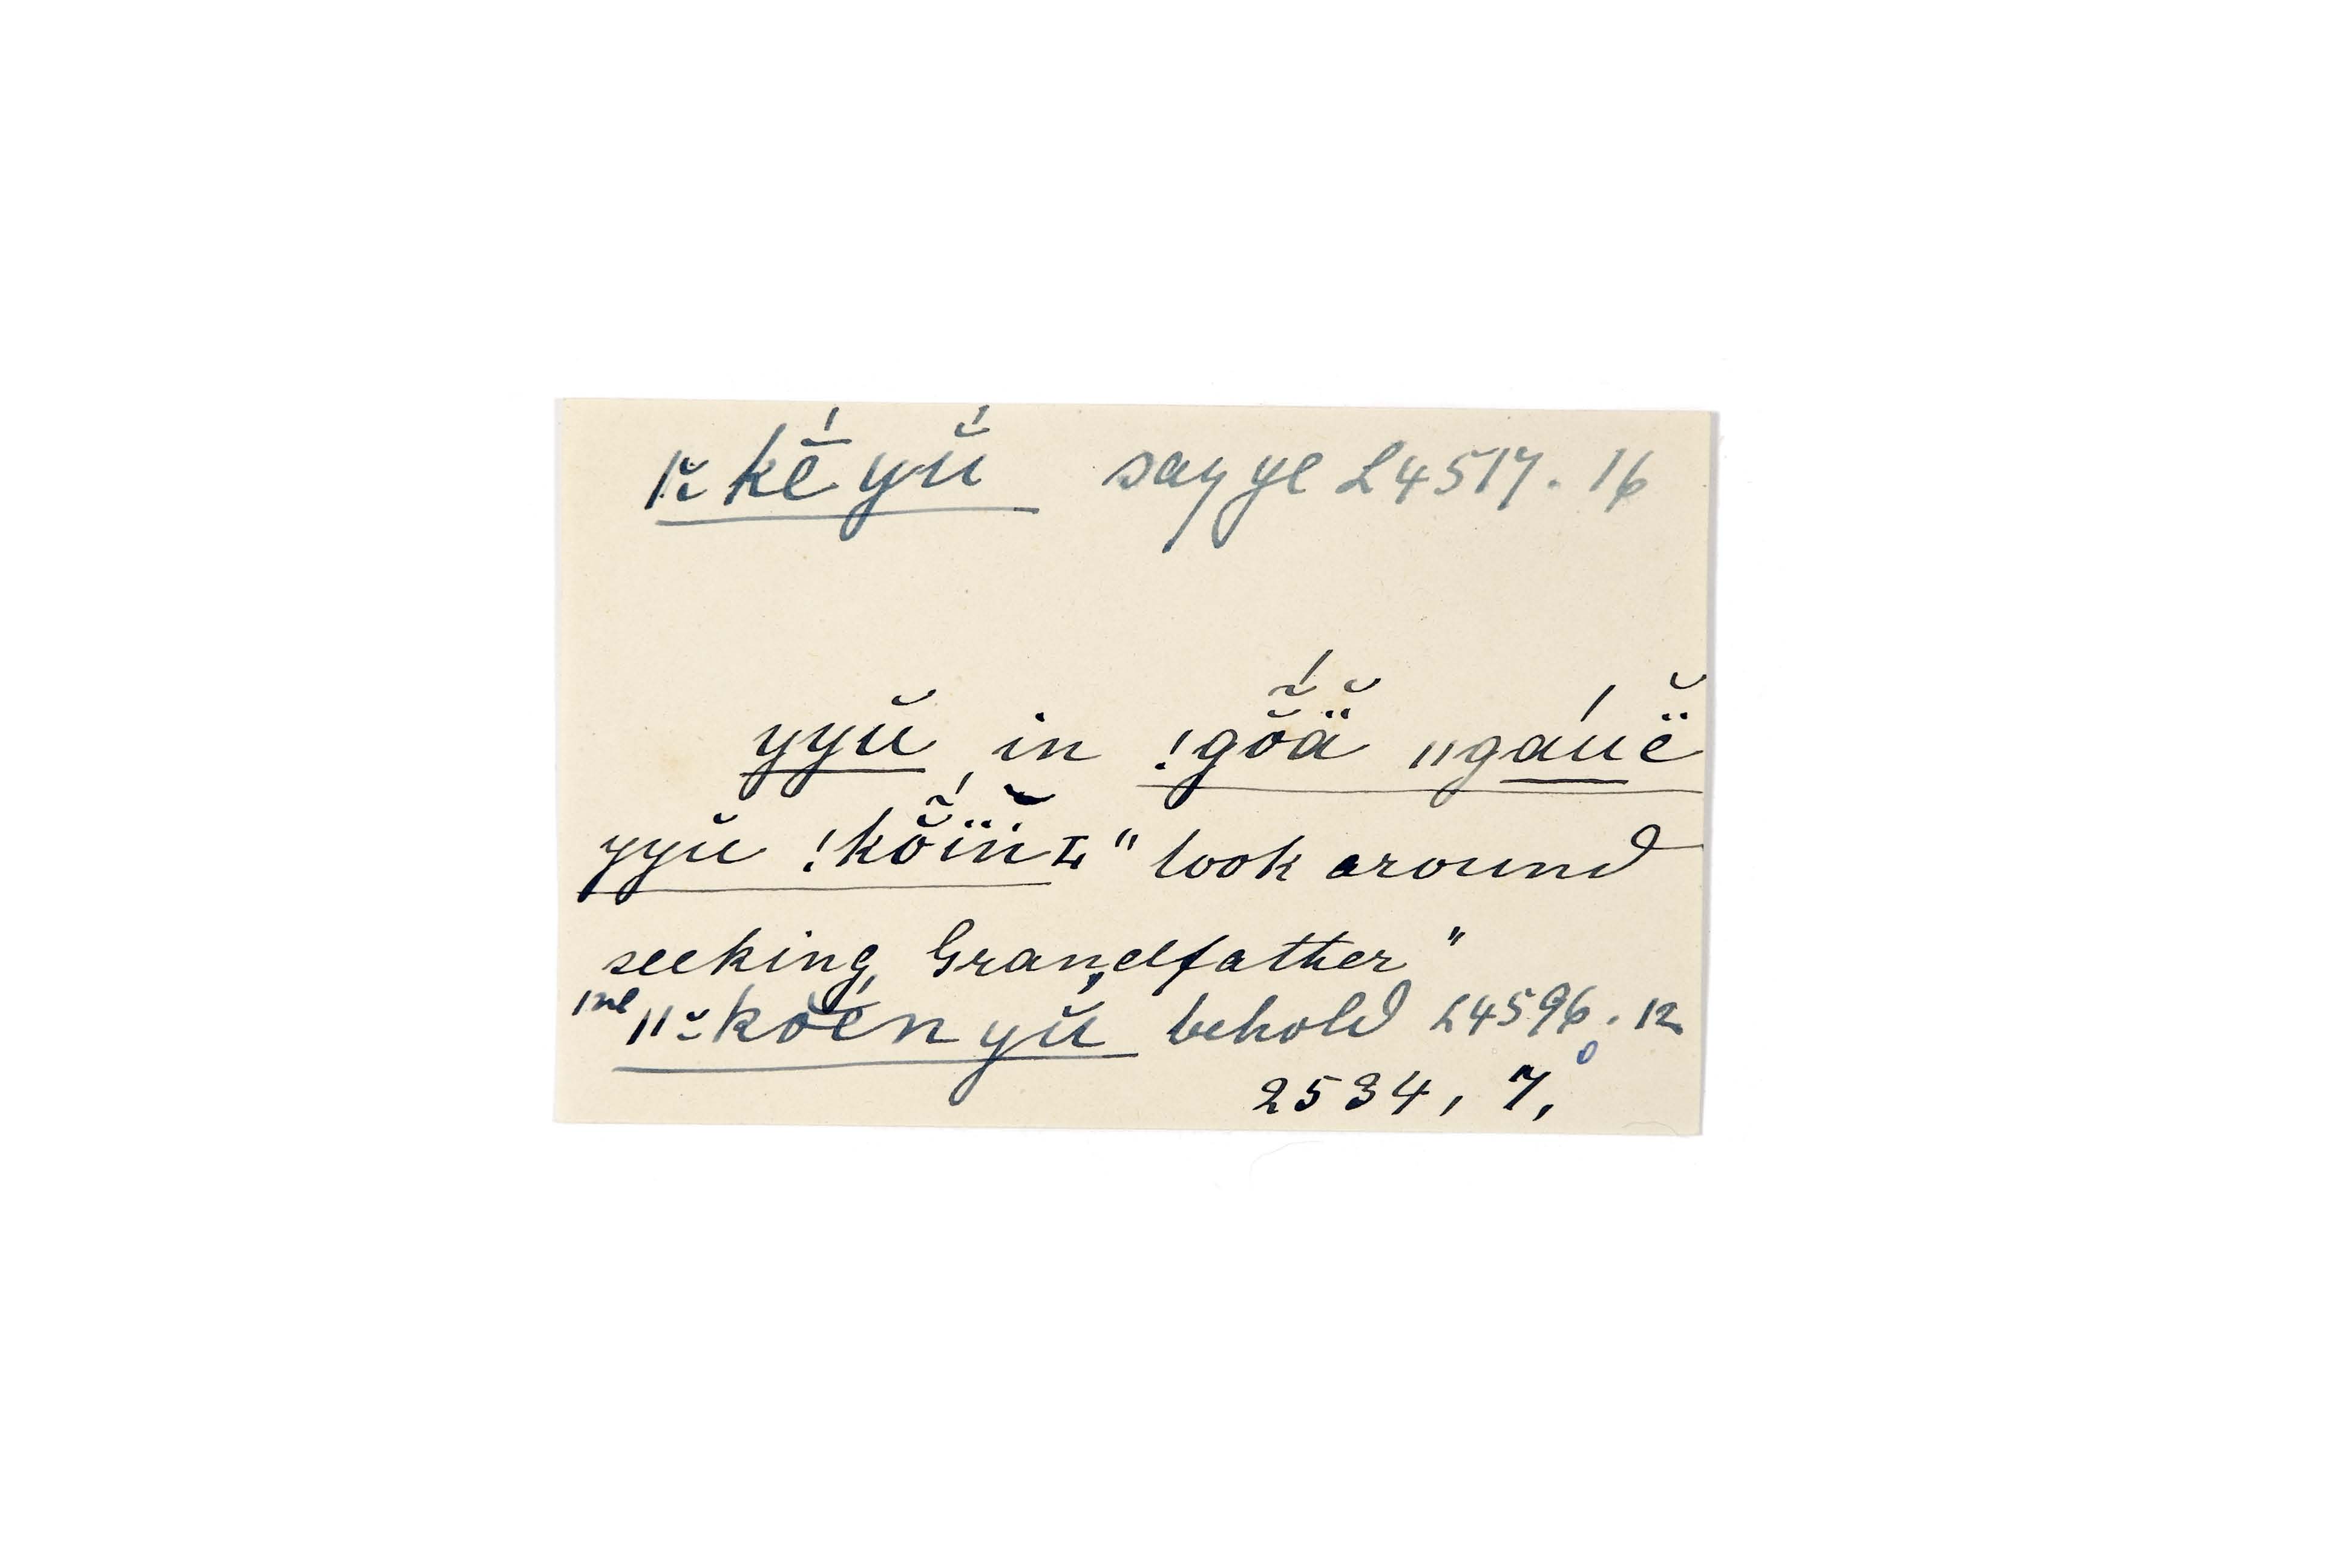 |n̆ ké̄ yŭ́ say ye L4517. 16
yyŭ in !gõ̆́ä̆ ||gáuë̆
yyŭ !kõ̆́ïn̈̆ "look around
seeking, Grandfather"
||n̆ kŏén yŭ behold L4596. 12
2534, 7,